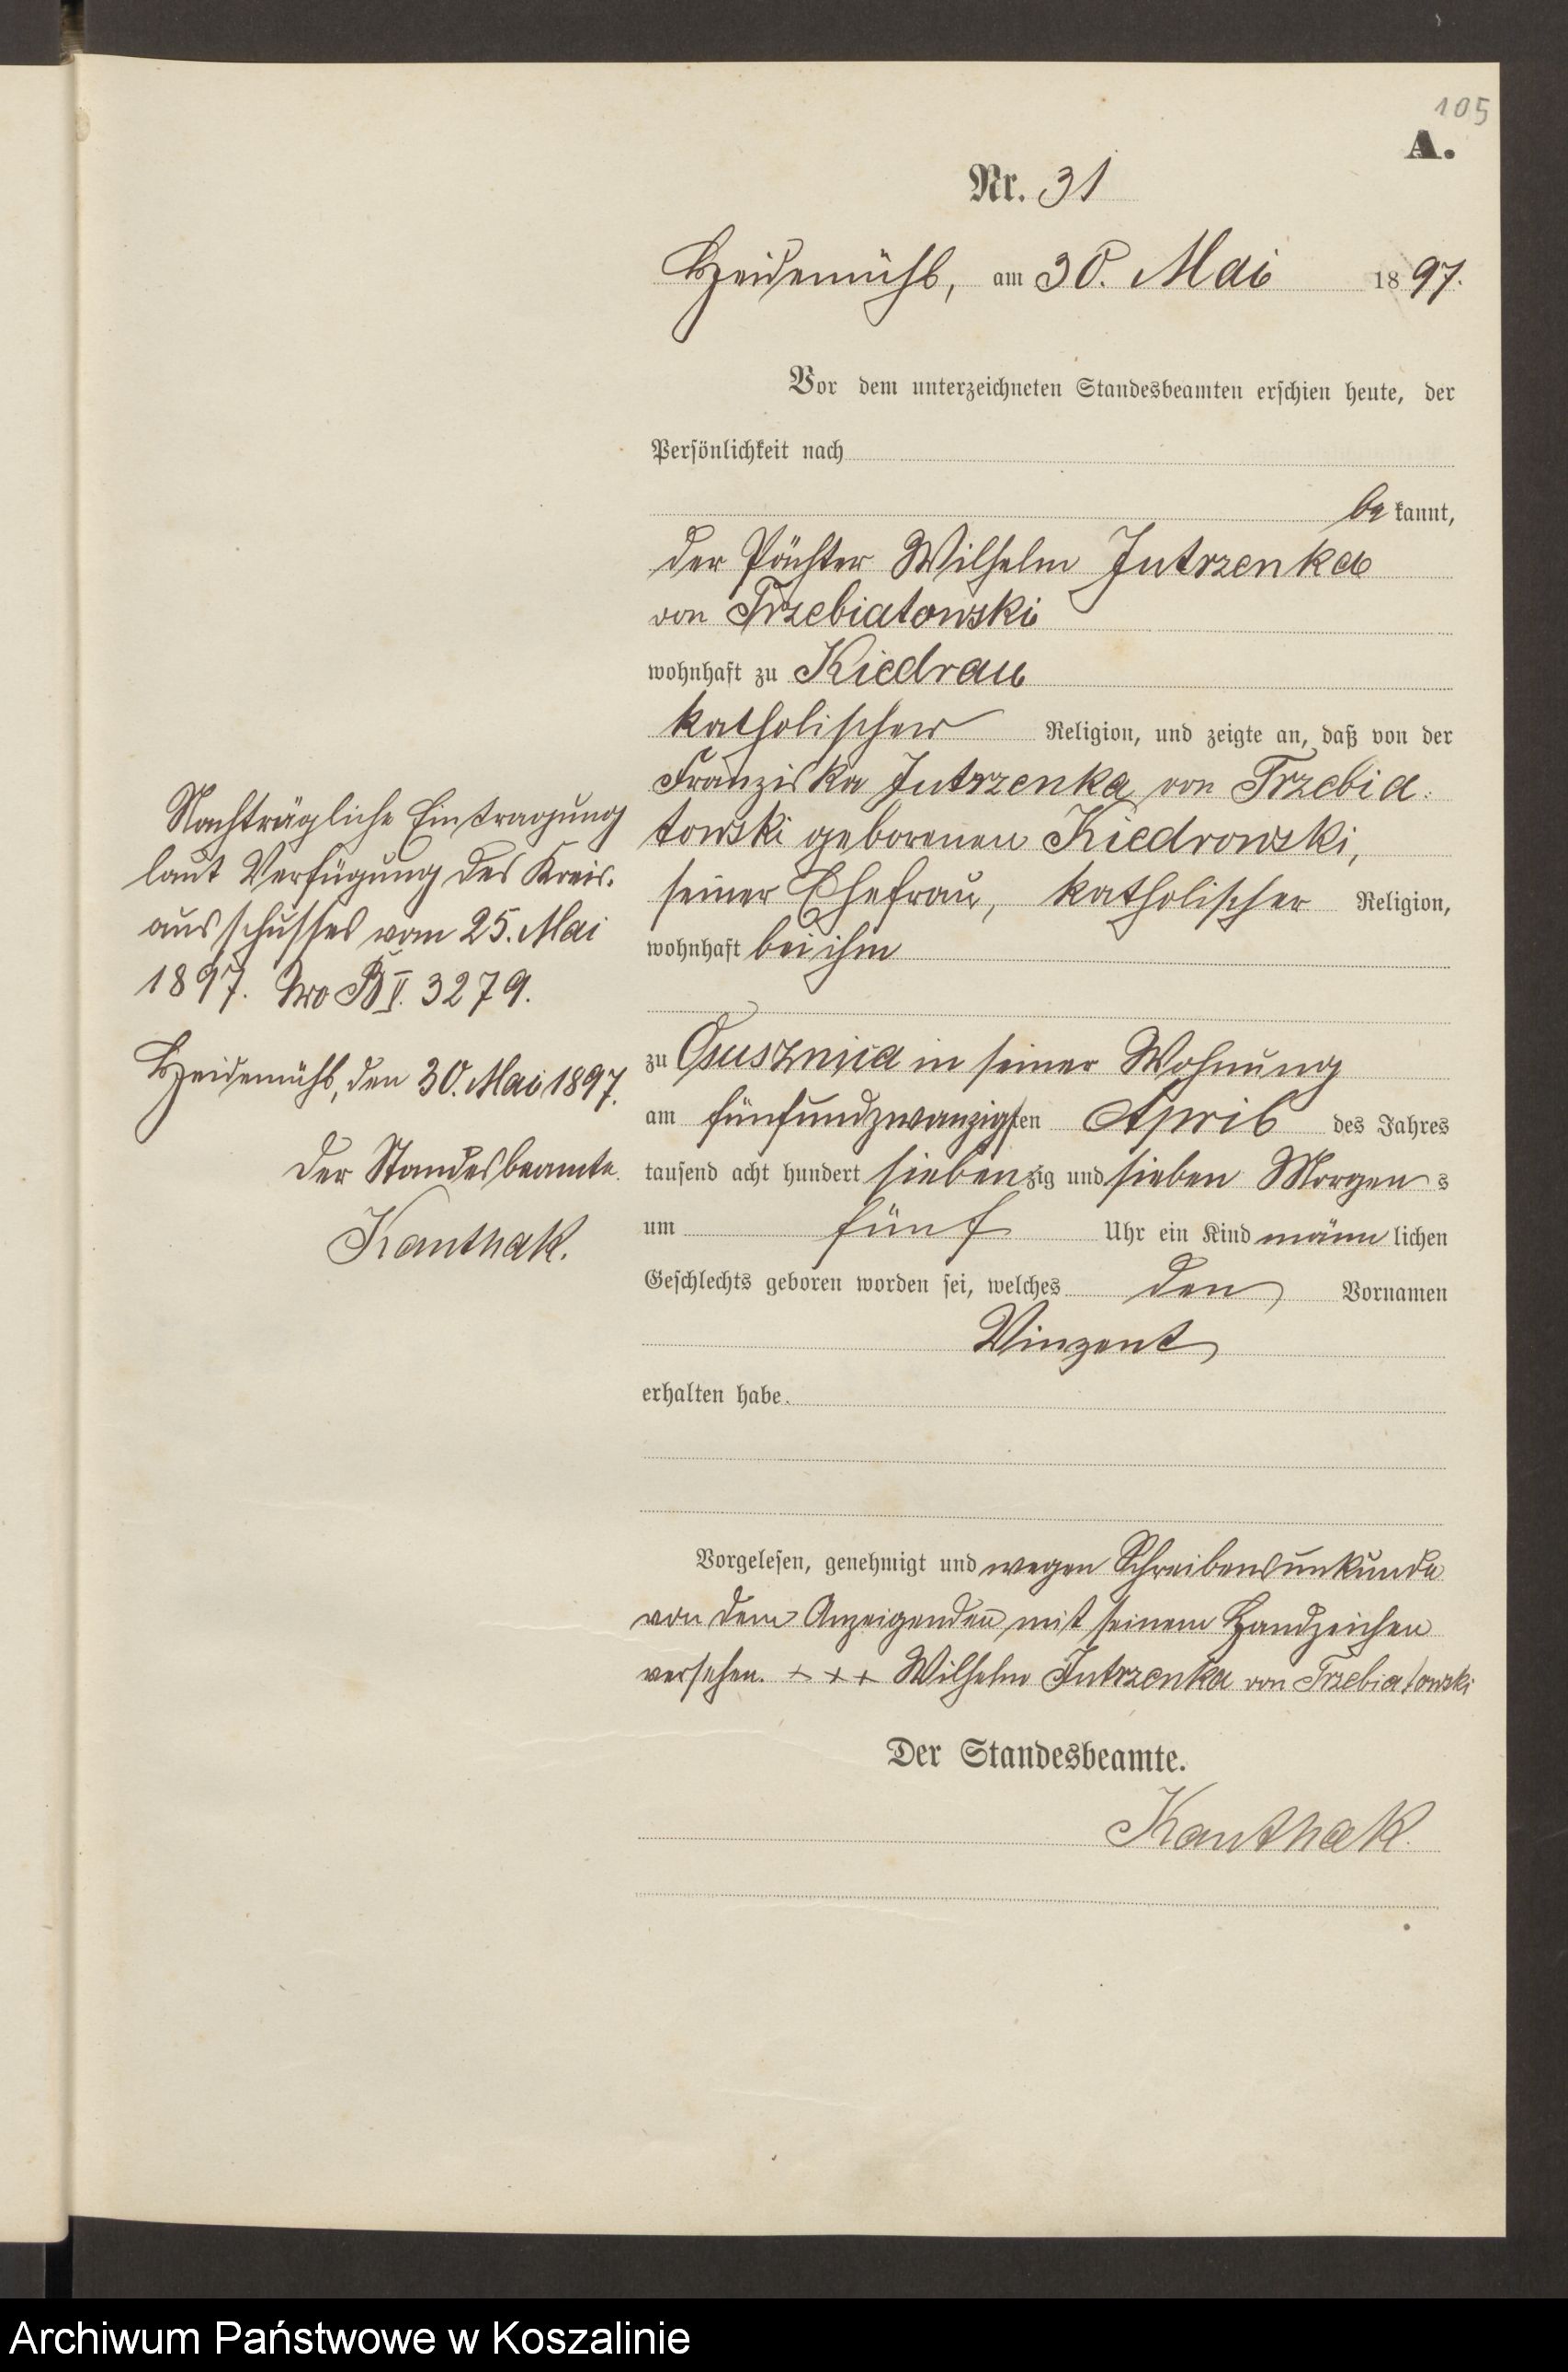 105
A.
Nr. 31
Heidemühl, am 30. Mai 1897.
Vor dem unterzeichneten Standesbeamten erschien heute, der
Persönlichkeit nach
be kannt,
der Pächter Wilhelm Jutrzenka
von Trzebiatowski
wohnhaft zu Kiedrau
katholischer Religion, und zeigte an, daß von der
Franziska Jutrzenka von Trzebia-
towski geborenen Kiedrowski,
seiner Ehefrau, katholischer Religion,
wohnhaft bei ihm
zu Ossusznica in seiner Wohnung
am fünfundzwanzigsten April des Jahres
tausend acht hundert siebenzig und sieben Morgens
um fünf Uhr ein Kind männlichen
Geschlechts geboren worden sei, welches den Vornamen
Vinzent
erhalten habe.
Vorgelesen, genehmigt und wegen Schreibensunkunde
von dem Anzeigenden mit seinem Handzeichen
versehen. + + + Wilhelm Jutrzenka von Trzebiatowski
Der Standesbeamte.
Kanthak.
Nachträgliche Eintragung
laut Verfügung des Kreis-
ausschusses vom 25. Mai
1897. Nro B V. 3279.
Heidemühl, den 30. Mai 1897.
Der Standesbeamte.
Kanthak.
Archiwum Państwowe w Koszalinie